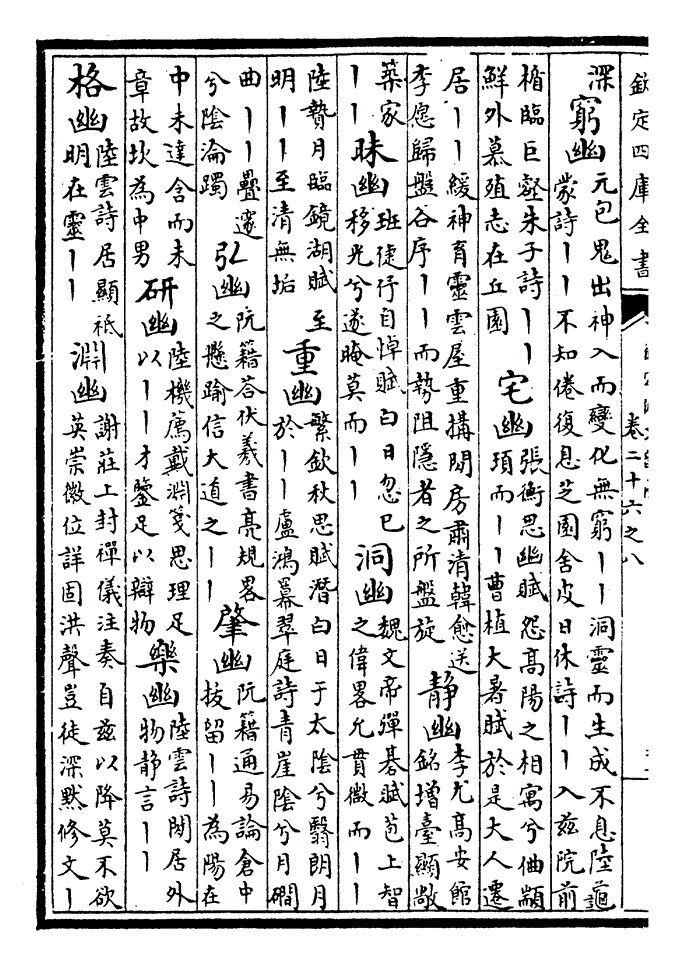 欽定四庫全書
卷二十六之八
深
窮幽
元包鬼出神入而變化無窮丨丨洞靈而生成不息陸龜
蒙詩丨丨不知倦復息芝園舍皮日休詩丨丨入兹院前
楯臨巨壑朱子詩丨丨
鮮外慕殖志在丘園
宅幽
張衡思幽賦怨高陽之相寓兮㑁顓
頊而丨丨曹植大暑賦於是大人遷
居丨丨緩神育靈雲屋重搆閒房肅清韓愈送
李愿歸盤谷序丨丨而勢阻隱者之所盤旋
静幽
李尤高安館
銘增臺顯敞
築家
丨丨
昧幽
班倢伃自悼賦白日忽已
移光兮遂晻莫而丨丨
洞幽
魏文帝彈碁賦苞上智
之偉畧允貫微而丨丨
陸贄月臨鏡湖賦至
明丨丨至清無垢
重幽
繁欽秋思賦潛白日于太陰兮翳朗月
於丨丨盧鴻羃翠庭詩青崖陰兮月磵
曲丨丨疊邃
兮陰淪躅
弘幽
阮籍答伏羲書亮規畧
之懸踰信大道之丨丨
肇幽
阮籍通易論倉中
拔留丨丨為陽在
中未達含而未
章故坎為中男
研幽
陸機薦戴淵箋思理足
以丨丨才鑒足以辯物
樂幽
陸雲詩閒居外
物静言丨丨
格幽
陸雲詩居顯祗
明在靈丨丨
淵幽
謝莊上封禪儀注奏自兹以降莫不欲
英崇徽位詳固洪聲豈徒深黙修文丨